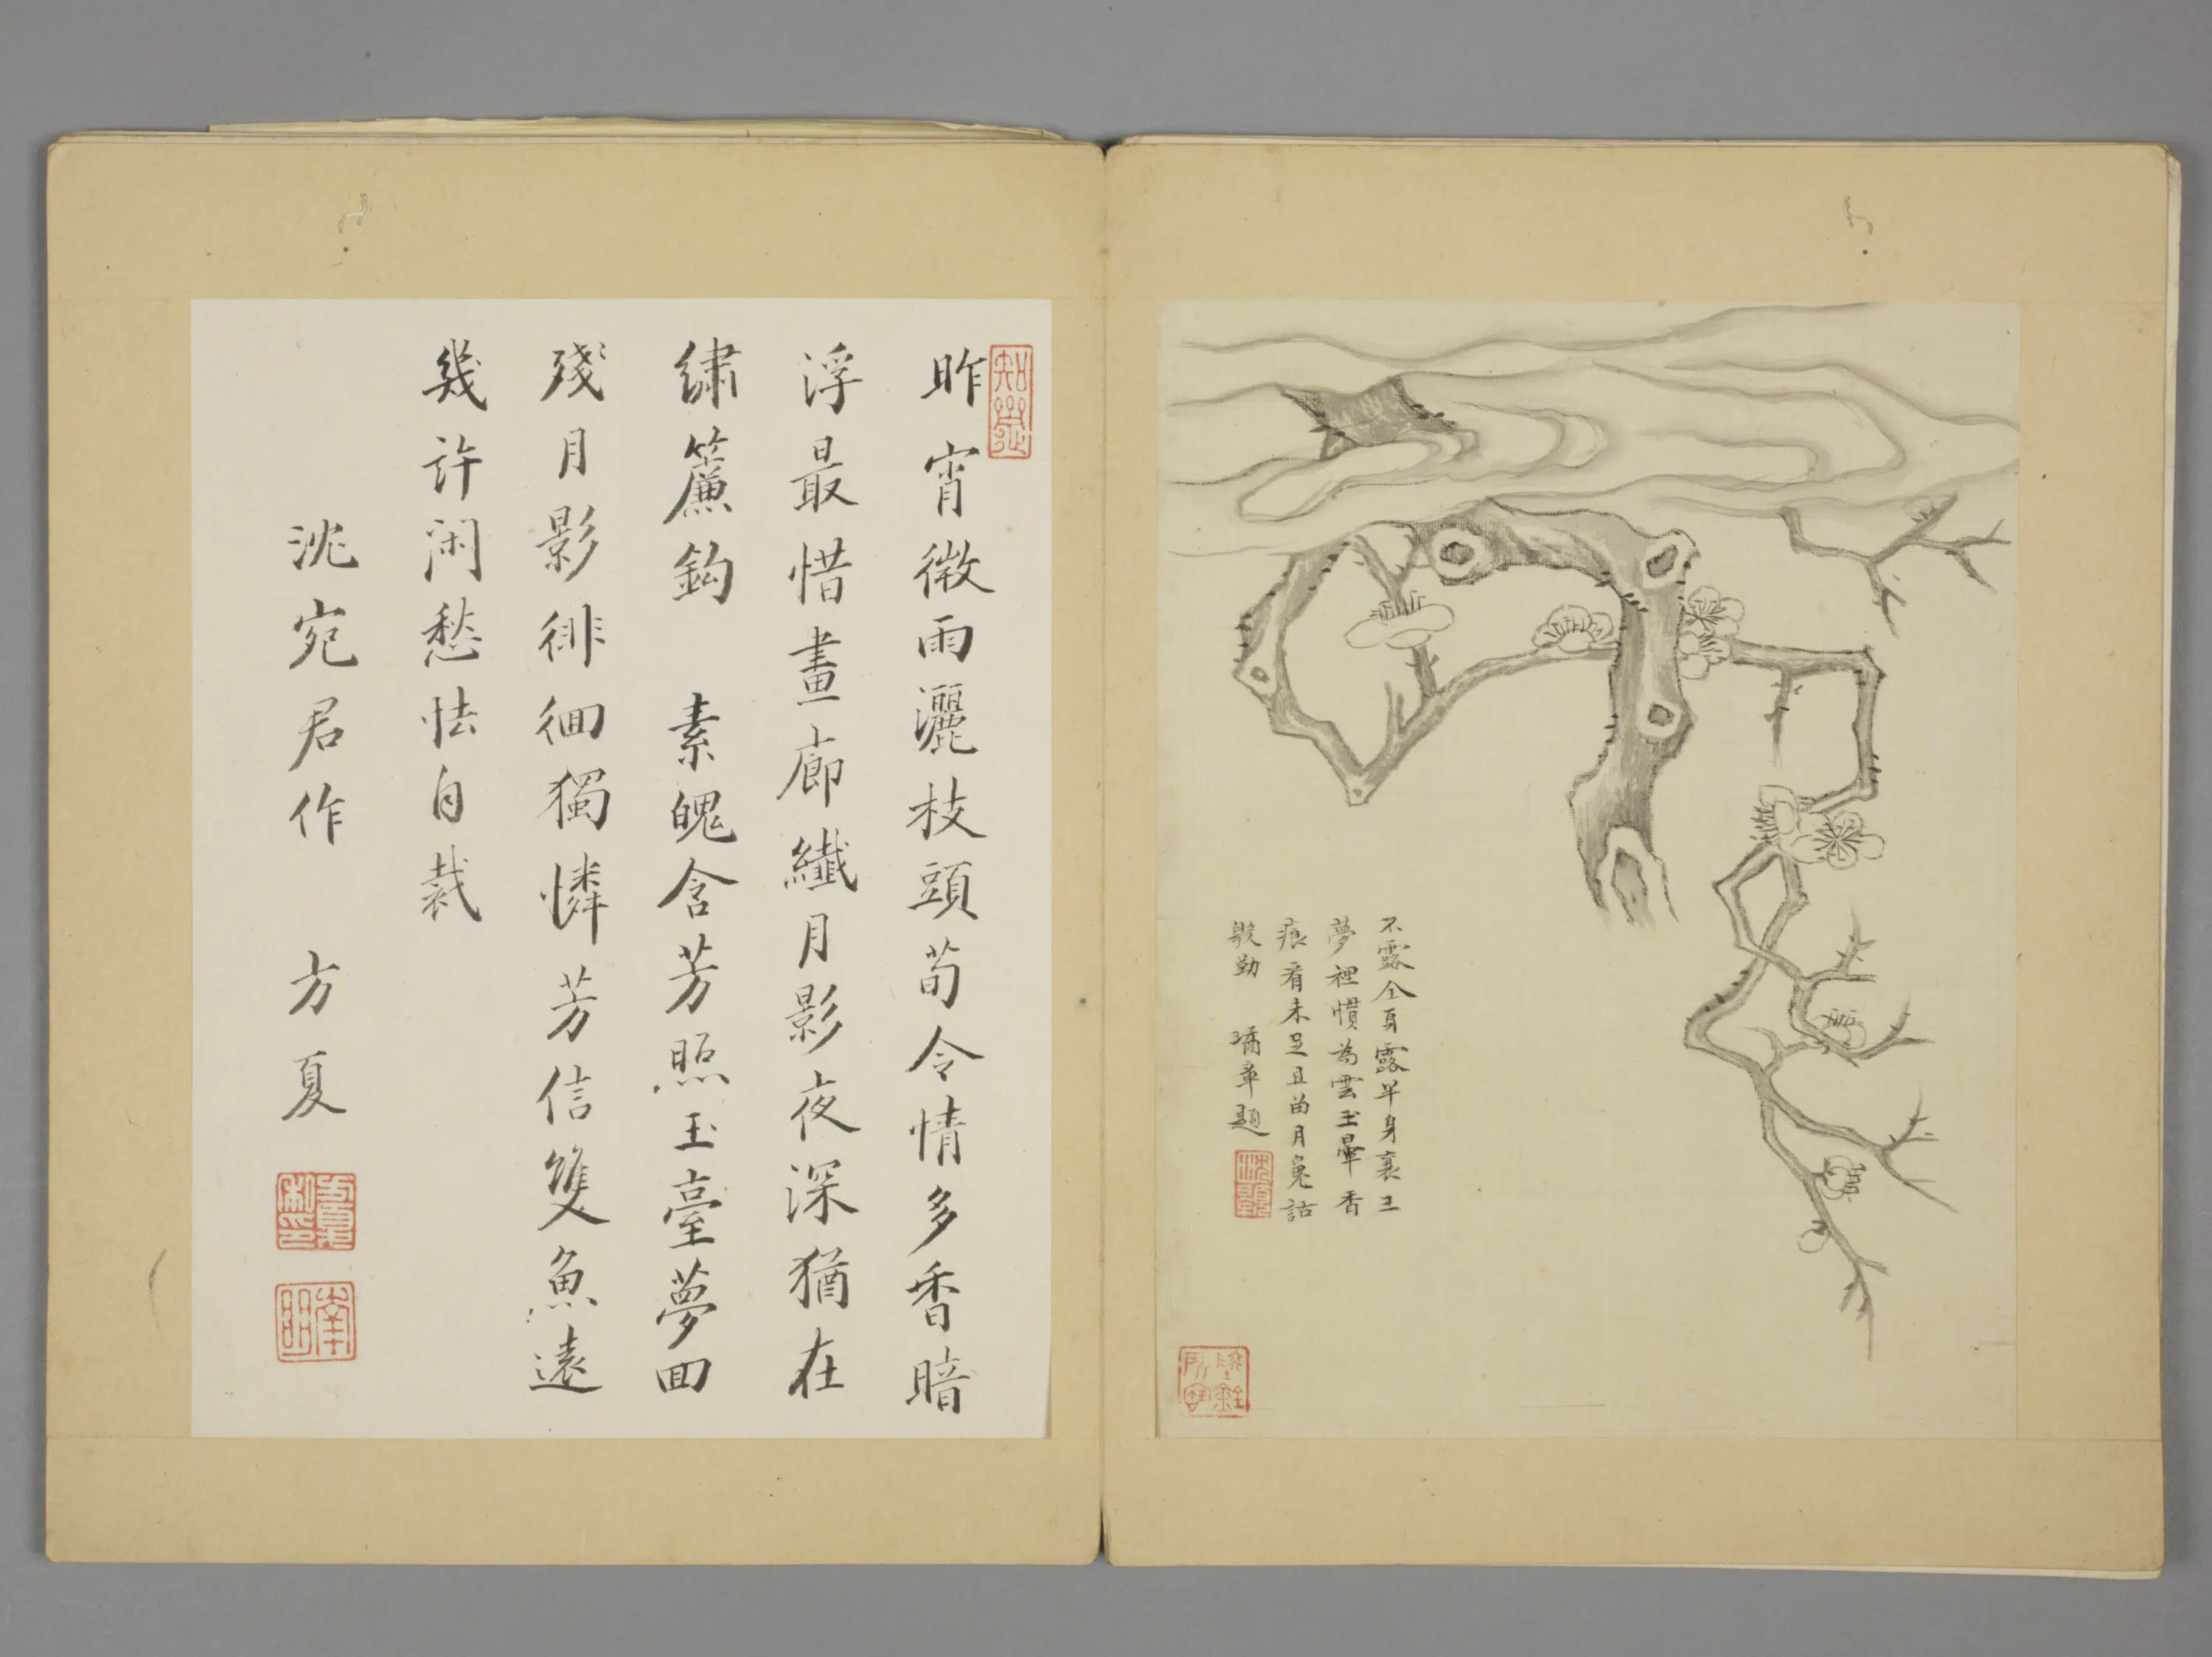 不露仝身露半身襄王
夢裡慣為雲玉暈香
痕看未足且畄月兔話
殷勤 璚章題
昨宵微雨灑枝頭荀令情多香暗
浮最惜畫廊纖月影夜深猶在
繡簾鈎 素魄含芳照玉臺夢回
殘月影徘徊獨憐芳信雙魚遠
幾許閑愁怯自裁
沈宛君作 方夏
方夏私印
南明